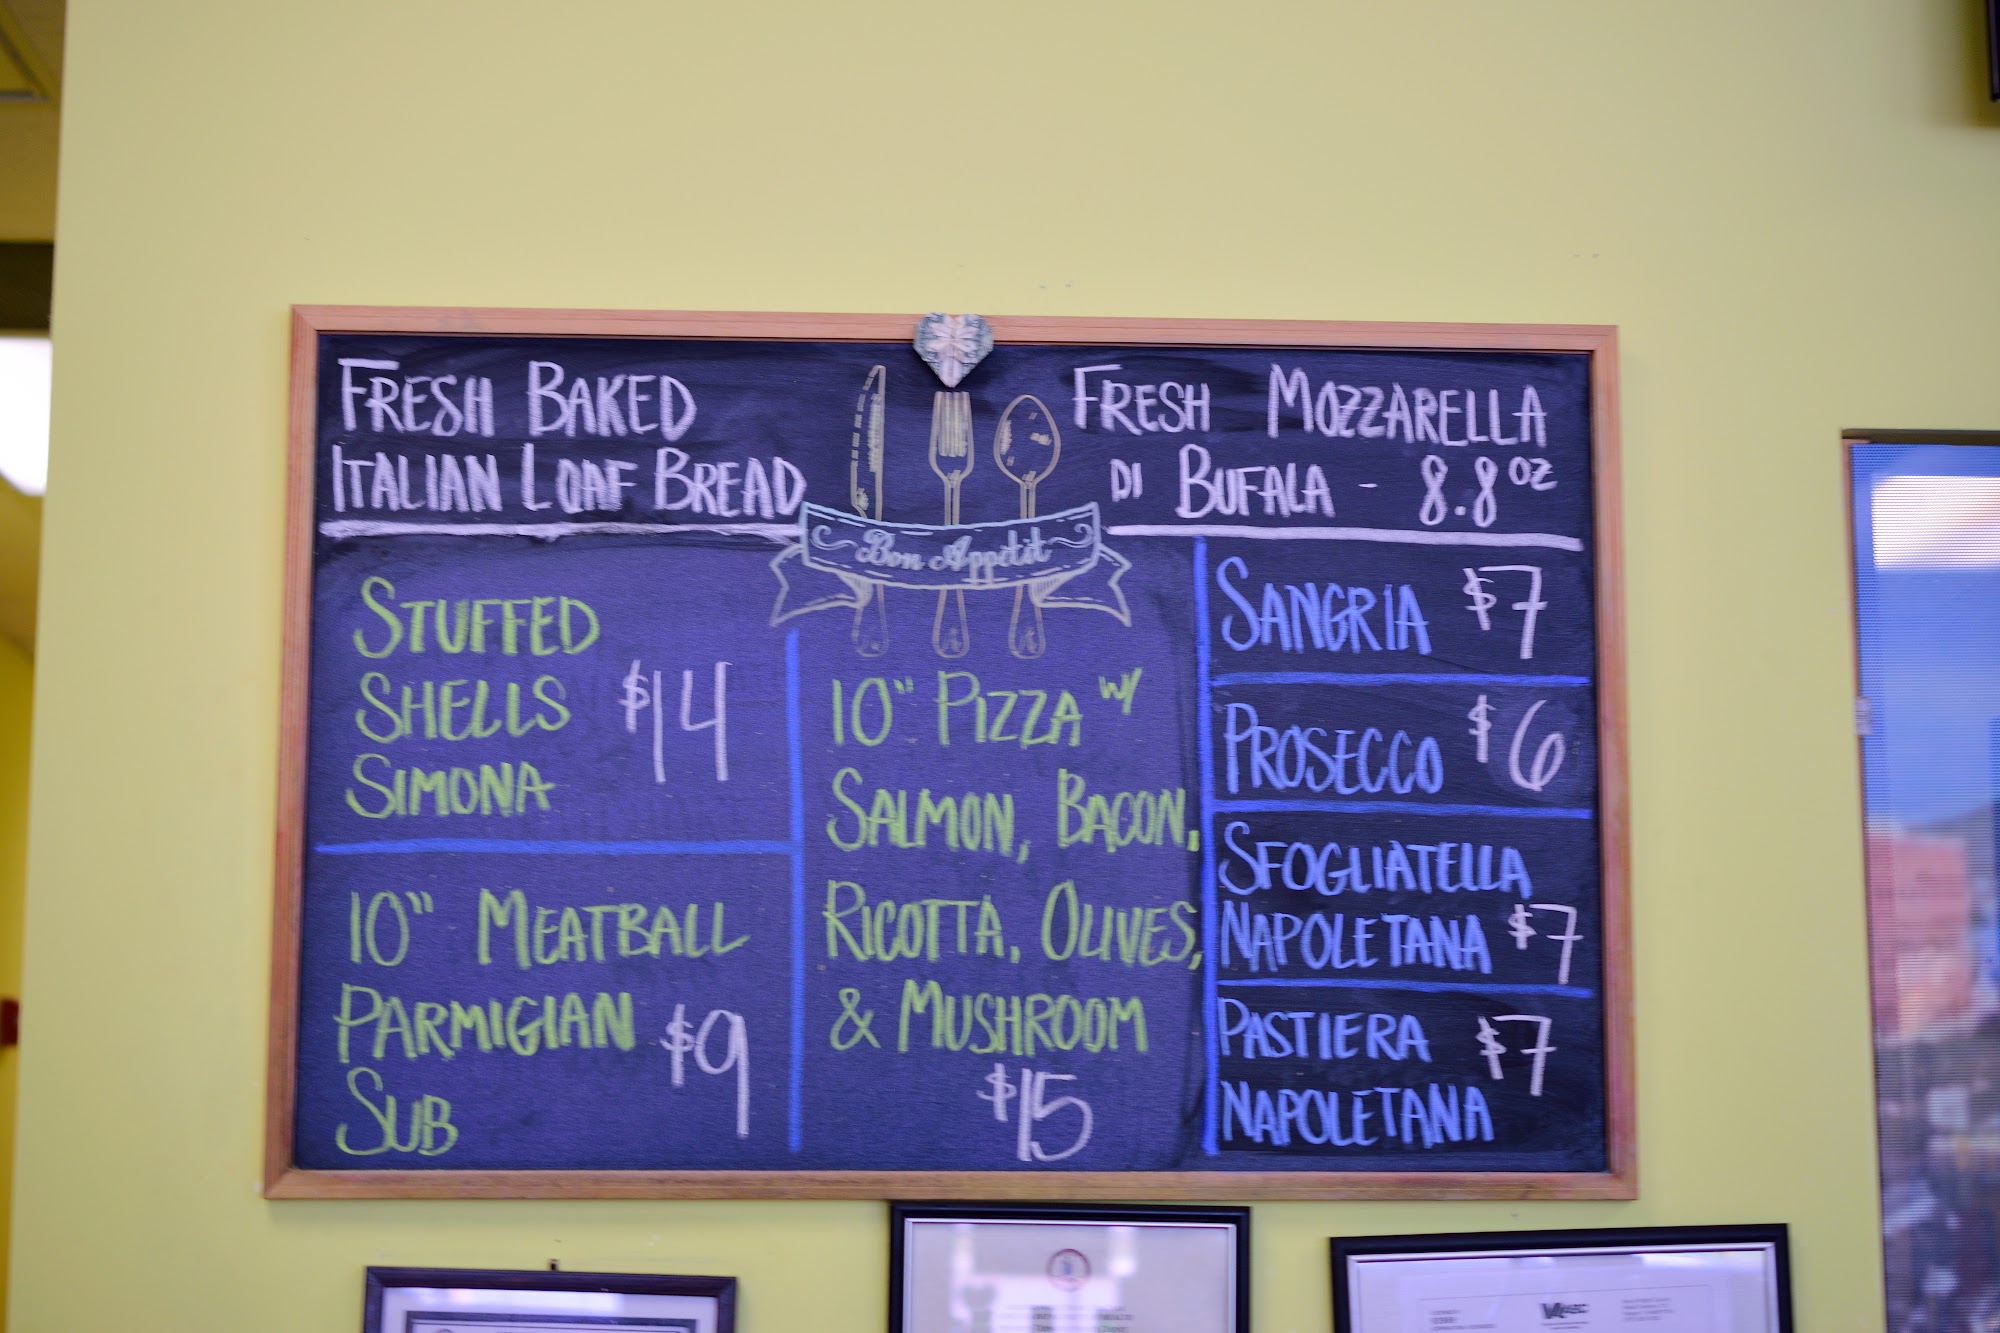 FRESH BAKED
ITALIAN LOAF BREAD
FRESH MOZZARELLA
DI BUFALA - 8.8 OZ
Bon Appetit
STUFFED
SHELLS $14
SIMONA
10" MEATBALL
PARMIGIAN $9
SUB
10" PIZZA W/
SALMON, BACON,
RICOTTA, OLIVES,
& MUSHROOM
$15
SANGRIA $7
PROSECCO $6
SFOGLIATELLA
NAPOLETANA $7
PASTIERA $7
NAPOLETANA